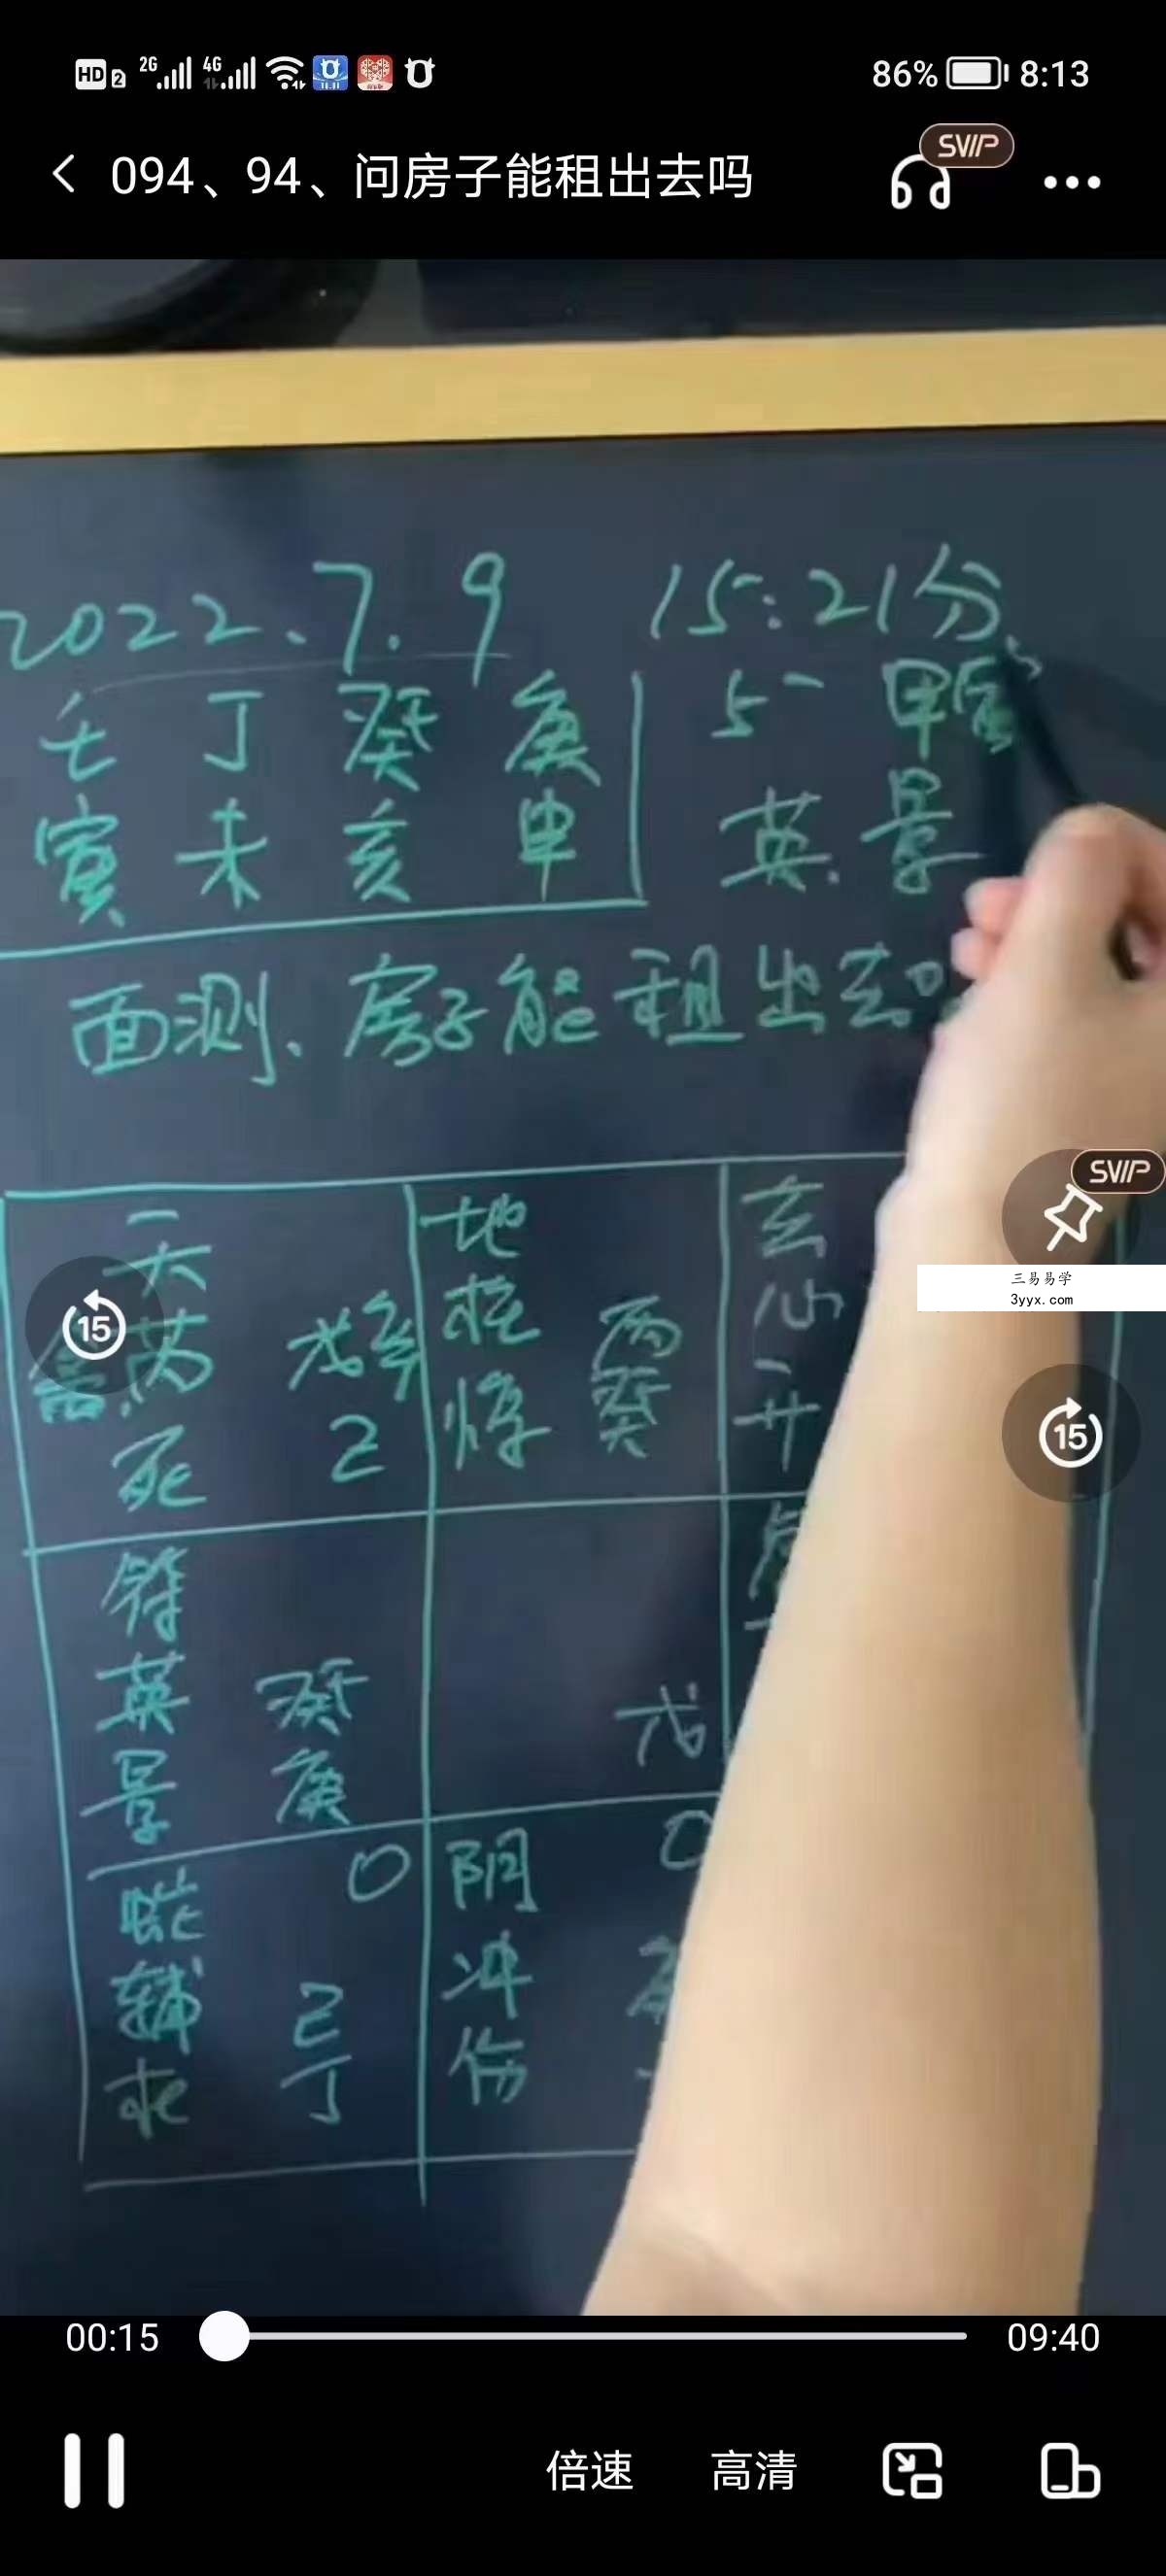 HD 2 2G 4G 11.11 86% 8:13
094、94、问房子能租出去吗
SVIP
2022、7.9 15:21分
壬 丁 癸 庚 5一 甲寅
寅 未 亥 申 英.景
面测、房子能租出去
SVIP
三易易学
3yyx.com
15
15
天 地 玄
芮 戊 柱 丙 心
禽 死 乙 惊 癸 开
符
英 癸 戊
景 庚
蛇 0 阴 0
辅 己 冲
杜 丁 伤
00:15 09:40
倍速 高清